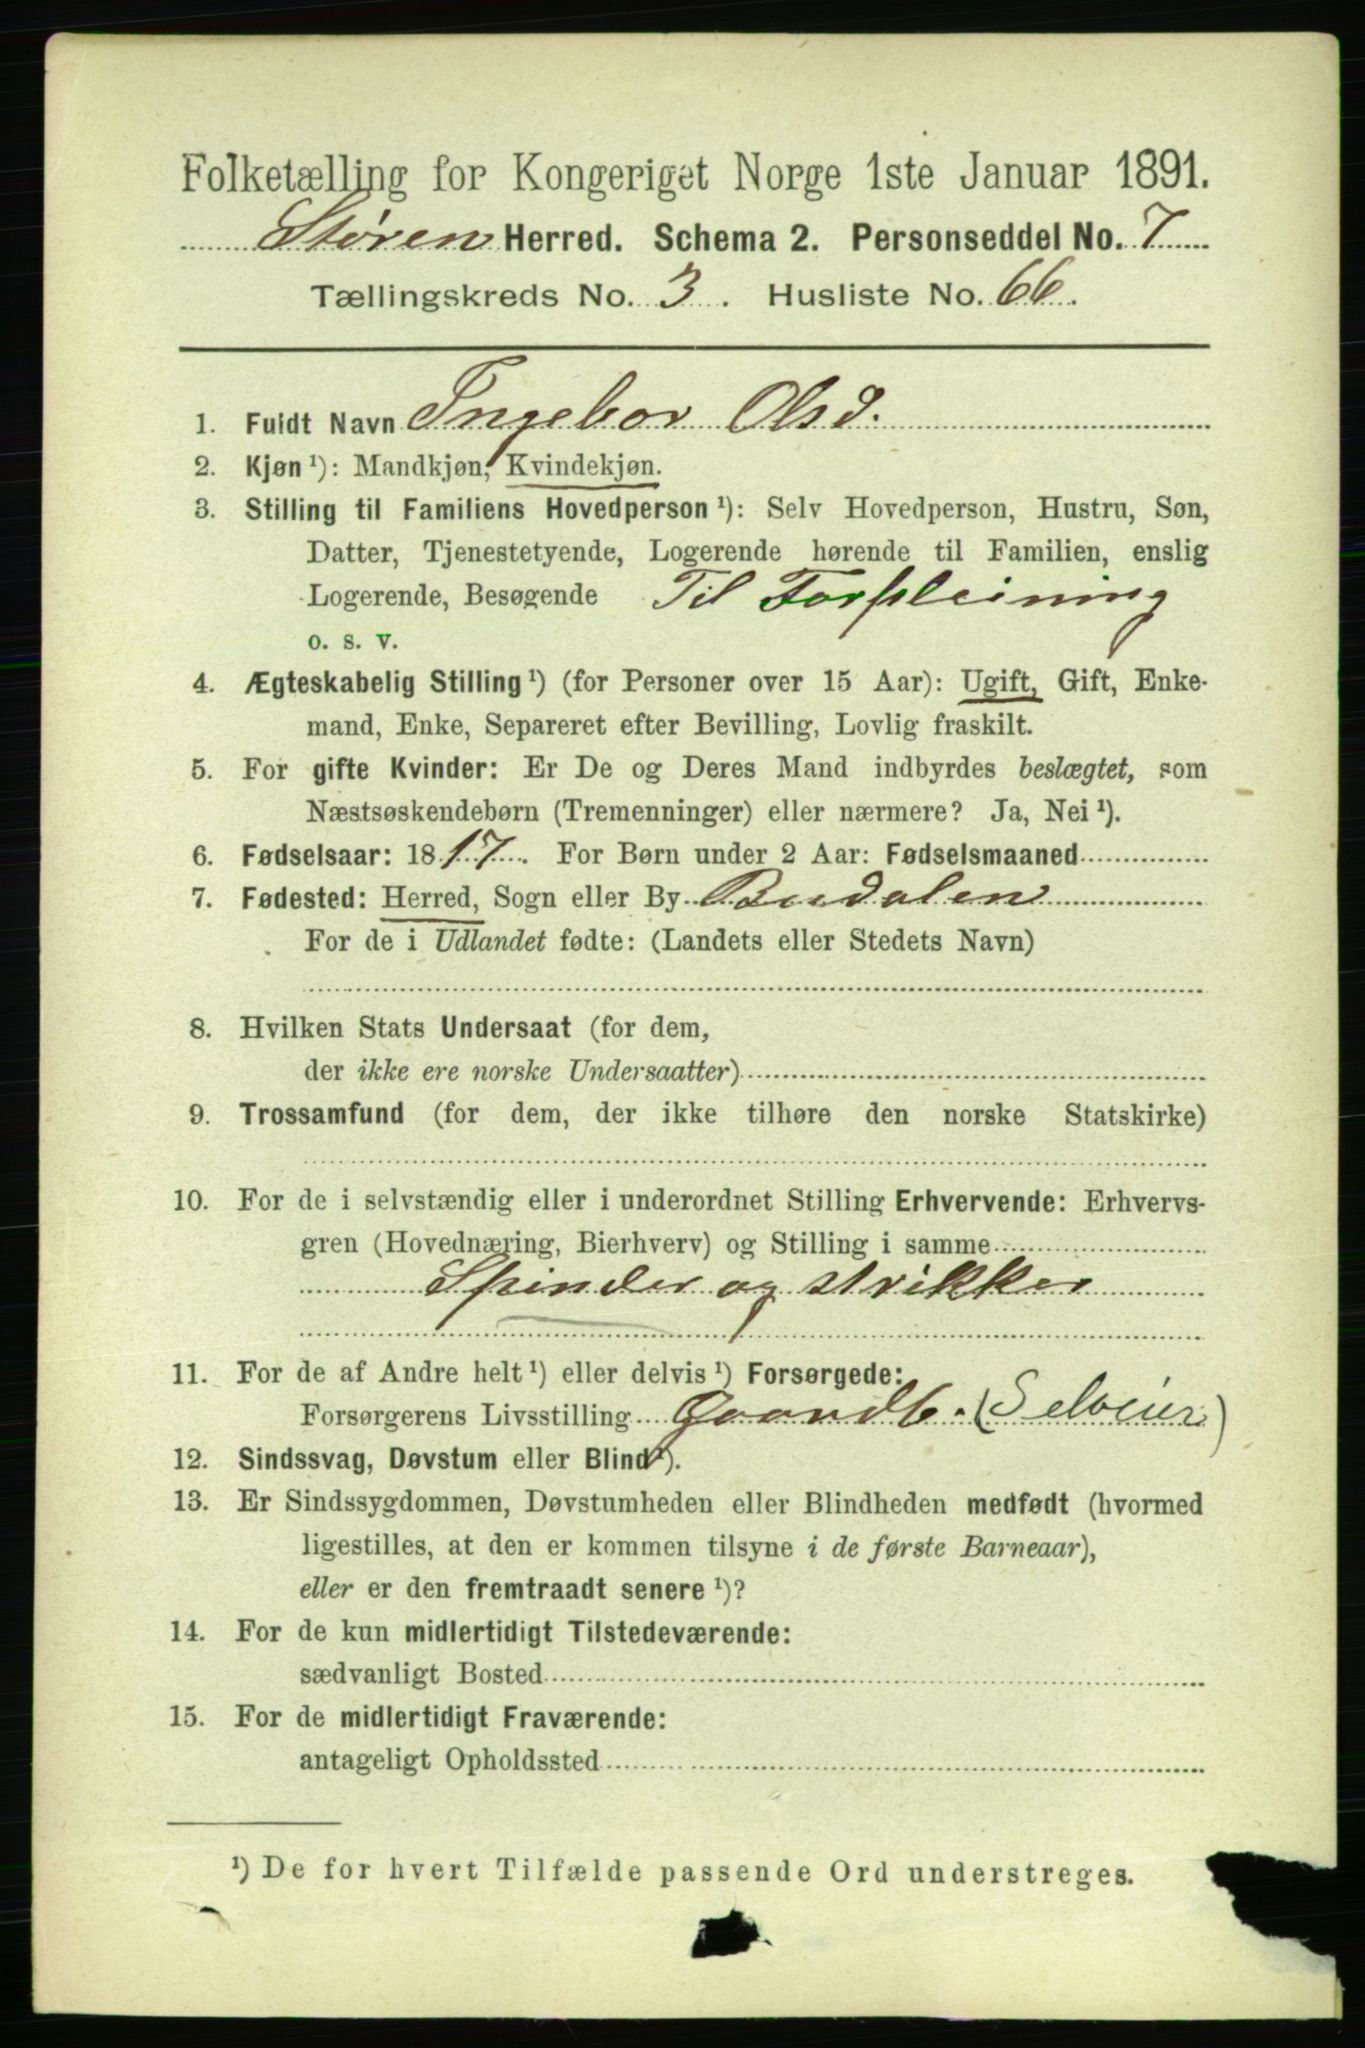 Folketælling for Kongeriget Norge 1ste Januar 1891.
Støren Herred. Schema 2. Personseddel No. 7
Tællingskreds No. 3. Husliste No. 66.
1. Fuldt Navn Ingebor Olsd.
2. Kjøn ¹): Mandkjøn, Kvindekjøn.
3. Stilling til Familiens Hovedperson ¹): Selv Hovedperson, Hustru, Søn,
Datter, Tjenestetyende, Logerende hørende til Familien, enslig
Logerende, Besøgende Til Forpleining
o. s. v.
4. Ægteskabelig Stilling ¹) (for Personer over 15 Aar): Ugift, Gift, Enke-
mand, Enke, Separeret efter Bevilling, Lovlig fraskilt.
5. For gifte Kvinder: Er De og Deres Mand indbyrdes beslægtet, som
Næstsøskendebørn (Tremenninger) eller nærmere? Ja, Nei ¹).
6. Fødselsaar: 1817. For Børn under 2 Aar: Fødselsmaaned
7. Fødested: Herred, Sogn eller By Budalen
For de i Udlandet fødte: (Landets eller Stedets Navn)
8. Hvilken Stats Undersaat (for dem,
der ikke ere norske Undersaatter)
9. Trossamfund (for dem, der ikke tilhøre den norske Statskirke)
10. For de i selvstændig eller i underordnet Stilling Erhvervende: Erhvervs-
gren (Hovednæring, Bierhverv) og Stilling i samme
Spinder og strikker
11. For de af Andre helt ¹) eller delvis ¹) Forsørgede:
Forsørgerens Livsstilling Gaardb. (Selveier)
12. Sindssvag, Døvstum eller Blind ¹).
13. Er Sindssygdommen, Døvstumheden eller Blindheden medfødt (hvormed
ligestilles, at den er kommen tilsyne i de første Barneaar),
eller er den fremtraadt senere ¹)?
14. For de kun midlertidigt Tilstedeværende:
sædvanligt Bosted
15. For de midlertidigt Fraværende:
antageligt Opholdssted
¹) De for hvert Tilfælde passende Ord understreges.